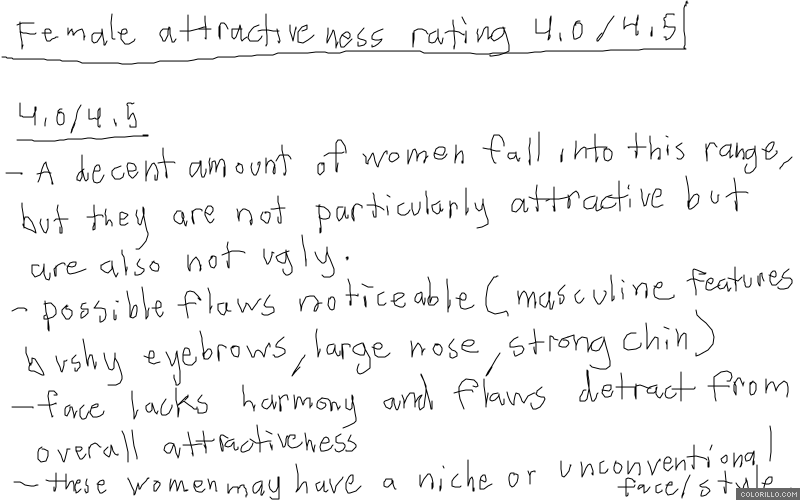 Female attractiveness rating 4.0/4.5
4.0/4.5
- A decent amount of women fall into this range,
but they are not particularly attractive but
are also not ugly.
- possible flaws noticeable (masculine features
bushy eyebrows, large nose, strong chin)
- face lacks harmony and flaws detract from
overall attractiveness
- these women may have a niche or unconventional
face/style
COLORILLO.COM